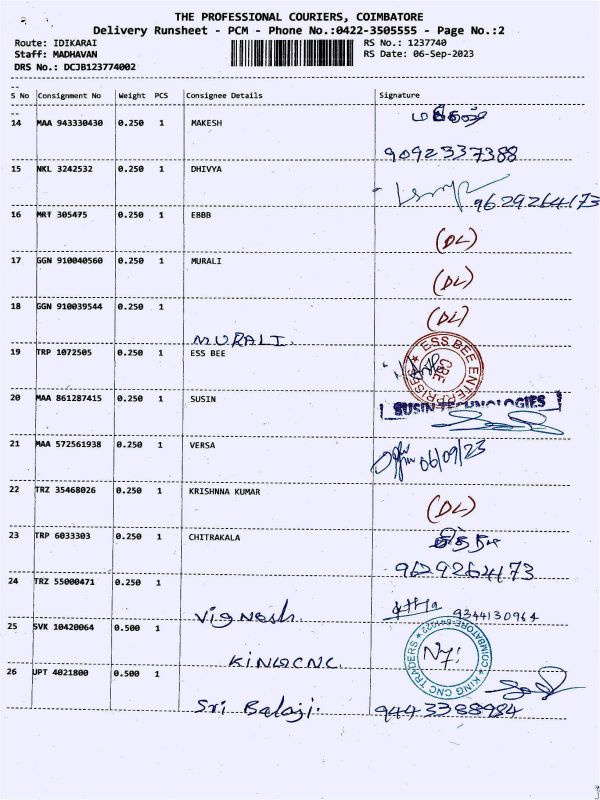 THE PROFESSIONAL COURIERS, COIMBATORE
Delivery Runsheet - PCM - Phone No.:0422-3505555 - Page No.:2
Route: IDIKARAI RS No.: 1237740
Staff: MADHAVAN RS Date: 06-Sep-2023
DRS No.: DCJB123774002
S No Consignment No Weight PCS Consignee Details Signature
14 MAA 943330430 0.250 1 MAKESH
9092337388
15 NKL 3242532 0.250 1 DHIVYA
9629264173
16 MRT 305475 0.250 1 EBBB
(DL)
17 GGN 910040560 0.250 1 MURALI
(DL)
18 GGN 910039544 0.250 1
MURALI. (DL)
19 TRP 1072505 0.250 1 ESS BEE
ESS BEE ENTERPRISES CBE
20 MAA 861287415 0.250 1 SUSIN
SUSIN TECHNOLOGIES
21 MAA 572561938 0.250 1 VERSA
06/09/23
22 TRZ 35468026 0.250 1 KRISHNNA KUMAR
(DL)
23 TRP 6033303 0.250 1 CHITRAKALA
9629264173
24 TRZ 55000471 0.250 1
Vignesh. 9344130964
25 SVK 10420064 0.500 1
KING CNC. KING CNC TRADERS COIMBATORE-641022
26 UPT 4021800 0.500 1
Sri Balaji. 9443388984